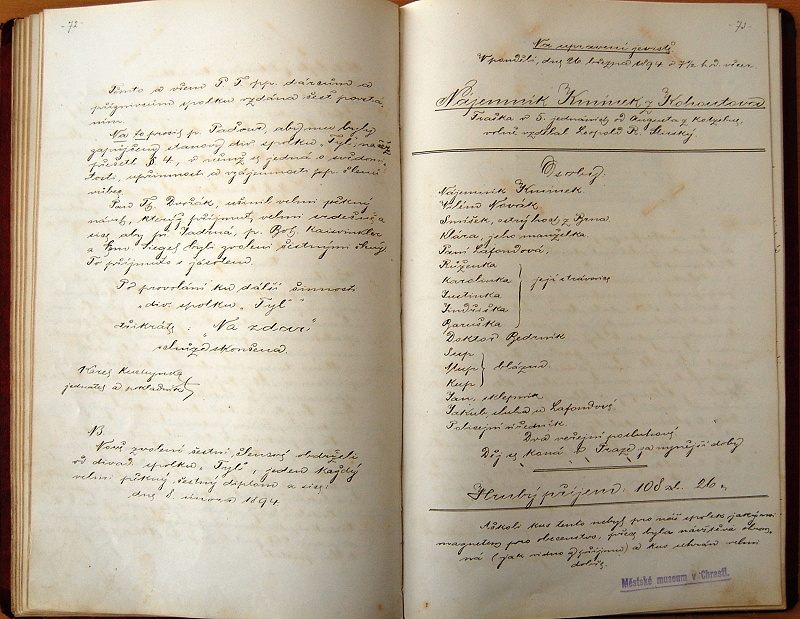 72
Tímto a všem P. T. pp. dárcům a
příznivcům spolku vzdána čest povstá-
ním.
Na to prosí p. Paďour, aby mu byly
zapůjčeny stanovy div. spolku „Tyl“, načež
přečetl § 4, v němž se jedná o svědomi-
tosti, upřímnosti a vzájemnosti pp. členů
vůbec.
Pan Fr. Dvořák, učinil velmi pěkný
návrh, který přijmut velmi srdečně a
sice aby pr. Jadrná, p. Boh. Kaiswinkler
a Em. Siegel byli zvoleni čestnými členy
To přijmuto s jásotem.
Po provolání ku další činnosti
„div. spolku „Tyl“
třikráte: „Na zdar“
schůze skončena.
Karel
jednatel a pokladník
NB.
Nově zvolení čestní členové obdrželi
od divad. spolku „Tyl“, jeden každý
velmi pěkný čestný diplom a sice:
dne 8. února 1894.
73
Na upravení jeviště
V pondělí, dne 26. března 1894 o 7½ hod. večer.
Nájemník Kmínek z Kohoutova
Fraška v 5. jednáních od Augusta z Kotzebue,
volně vzdělal Leopold R. Sluský.
Osoby:
Nájemník Kmínek.
Vilém Novák.
Smíšek, ostrý host z Brna.
Klára, jeho manželka
Paní Lafondová.
Růženka
Karolinka
Justinka
Jindřiška
Baruška
její strávnice
Doktor Bedrník
Sup
Mup
Kup
blázni.
Jan, sklepník
Jakub, sluha u Lafondové
Policejní úředník
Dva veřejní posluhové
Děj se koná v Praze za nynější doby
Hrubý příjem: 108 zl. 26.
Ačkoli kus tento nebyl pro náš spolek jakým
magnetem pro obecenstvo, přece byla návštěva
ná (jak vidno z příjmu) a kus sehrán velmi
dobře.
Městské museum v Chrasti.